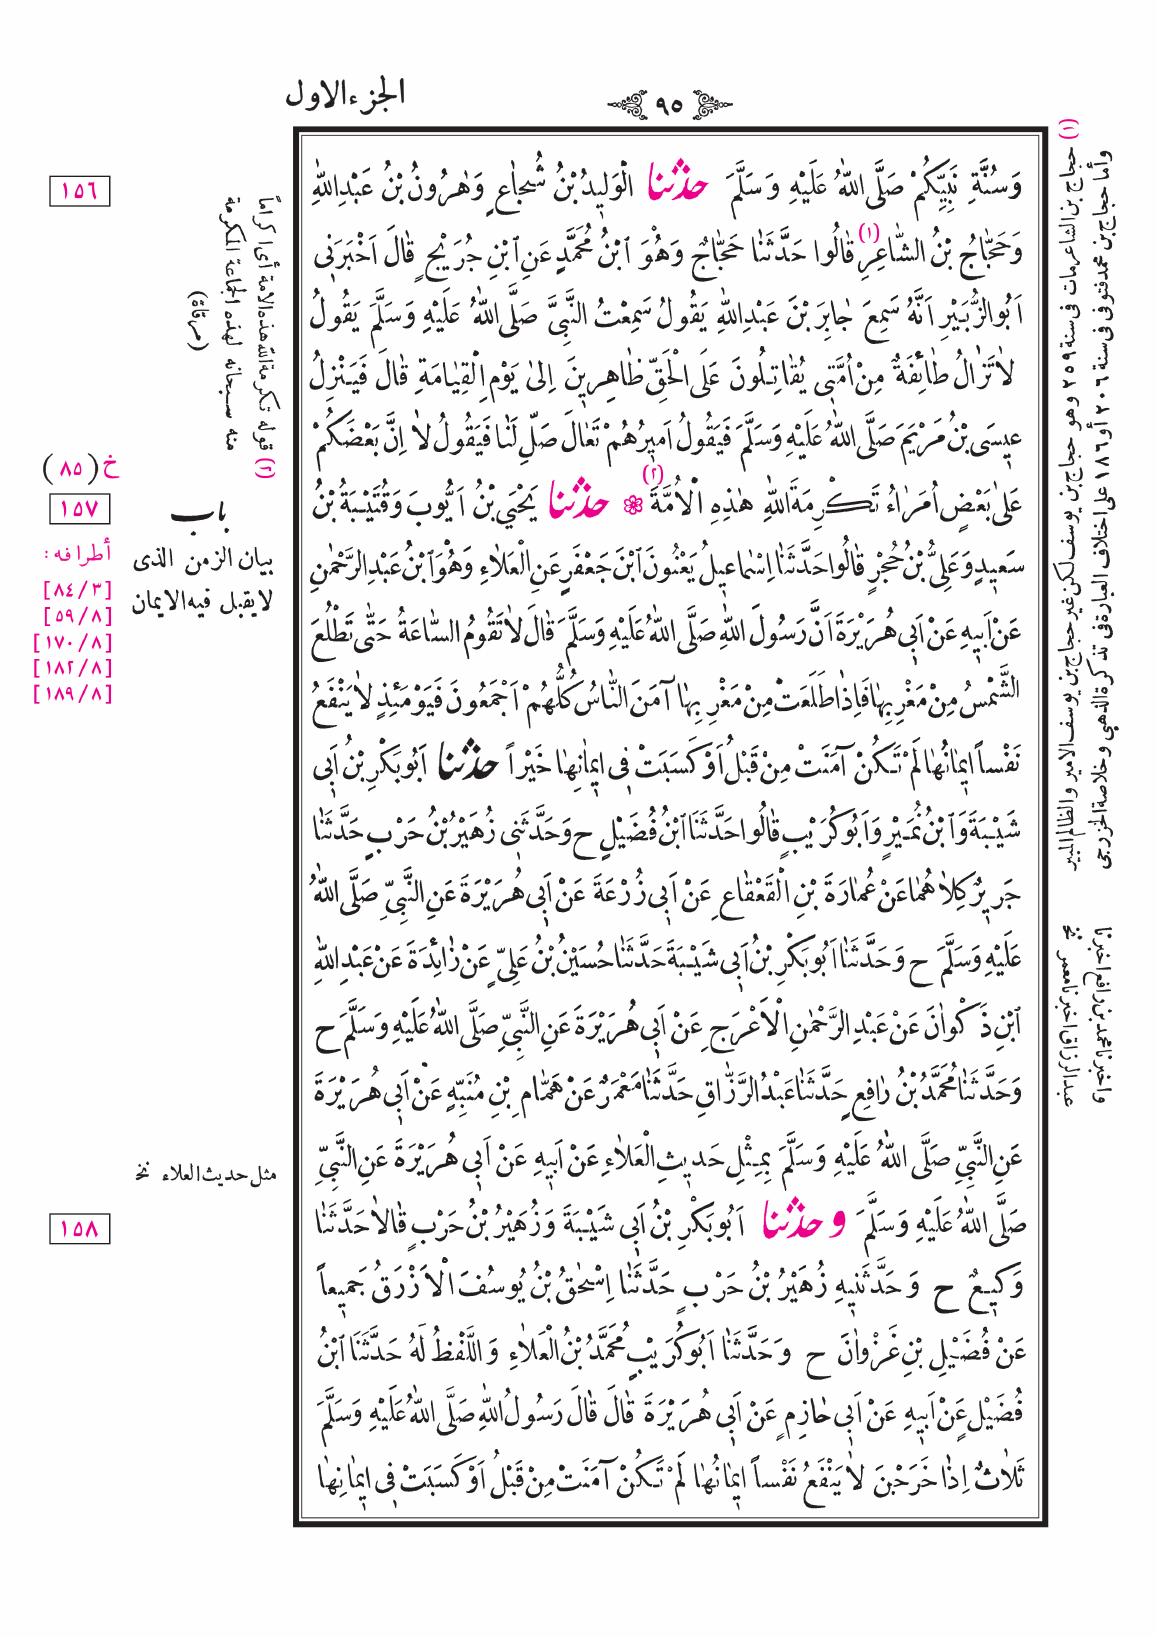 الجزء الاول
٩٥
وَسُنَّةِ نَبِيِّكُمْ صَلَّى اللّٰهُ عَلَيْهِ وَسَلَّمَ حدثنا الْوَلِيدُ بْنُ شُجَاعٍ وَهٰرُونُ بْنُ عَبْدِاللّٰهِ
وَحَجَّاجُ بْنُ الشَّاعِرِ (١) قَالُوا حَدَّثَنَا حَجَّاجٌ وَهُوَ ابْنُ مُحَمَّدٍ عَنِ ابْنِ جُرَيْجٍ قَالَ اَخْبَرَنِى
اَبُو الزُّبَيْرِ اَنَّهُ سَمِعَ جَابِرَ بْنَ عَبْدِاللّٰهِ يَقُولُ سَمِعْتُ النَّبِىَّ صَلَّى اللّٰهُ عَلَيْهِ وَسَلَّمَ يَقُولُ
لَا تَزَالُ طَائِفَةٌ مِنْ اُمَّتِى يُقَاتِلُونَ عَلَى الْحَقِّ ظَاهِرِينَ اِلىٰ يَوْمِ الْقِيَامَةِ قَالَ فَيَنْزِلُ
عِيسَى بْنُ مَرْيَمَ صَلَّى اللّٰهُ عَلَيْهِ وَسَلَّمَ فَيَقُولُ اَمِيرُهُمْ تَعَالَ صَلِّ لَنَا فَيَقُولُ لَا اِنَّ بَعْضَكُمْ
عَلىٰ بَعْضٍ اُمَرَاءُ تَكْرِمَةَ اللّٰهِ هٰذِهِ الْاُمَّةَ (٢) ❁ حدثنا يَحْيَى بْنُ اَيُّوبَ وَقُتَيْبَةُ بْنُ
سَعِيدٍ وَعَلِىُّ بْنُ حُجْرٍ قَالُوا حَدَّثَنَا اِسْمَاعِيلُ يَعْنُونَ ابْنَ جَعْفَرٍ عَنِ الْعَلَاءِ وَهُوَ ابْنُ عَبْدِ الرَّحْمٰنِ
عَنْ اَبِيهِ عَنْ اَبِى هُرَيْرَةَ اَنَّ رَسُولَ اللّٰهِ صَلَّى اللّٰهُ عَلَيْهِ وَسَلَّمَ قَالَ لَا تَقُومُ السَّاعَةُ حَتَّى تَطْلُعَ
الشَّمْسُ مِنْ مَغْرِبِهَا فَاِذَا طَلَعَتْ مِنْ مَغْرِبِهَا آمَنَ النَّاسُ كُلُّهُمْ اَجْمَعُونَ فَيَوْمَئِذٍ لَا يَنْفَعُ
نَفْساً اِيمَانُهَا لَمْ تَكُنْ آمَنَتْ مِنْ قَبْلُ اَوْ كَسَبَتْ فِى اِيمَانِهَا خَيْراً حدثنا اَبُو بَكْرِ بْنُ اَبِى
شَيْبَةَ وَابْنُ نُمَيْرٍ وَاَبُو كُرَيْبٍ قَالُوا حَدَّثَنَا ابْنُ فُضَيْلٍ ح وَحَدَّثَنِى زُهَيْرُ بْنُ حَرْبٍ حَدَّثَنَا
جَرِيرٌ كِلَاهُمَا عَنْ عُمَارَةَ بْنِ الْقَعْقَاعِ عَنْ اَبِى زُرْعَةَ عَنْ اَبِى هُرَيْرَةَ عَنِ النَّبِىِّ صَلَّى اللّٰهُ
عَلَيْهِ وَسَلَّمَ ح وَحَدَّثَنَا اَبُو بَكْرِ بْنُ اَبِى شَيْبَةَ حَدَّثَنَا حُسَيْنُ بْنُ عَلِىٍّ عَنْ زَائِدَةَ عَنْ عَبْدِ اللّٰهِ
ابْنِ ذَكْوَانَ عَنْ عَبْدِ الرَّحْمٰنِ الْاَعْرَجِ عَنْ اَبِى هُرَيْرَةَ عَنِ النَّبِىِّ صَلَّى اللّٰهُ عَلَيْهِ وَسَلَّمَ ح
وَحَدَّثَنَا مُحَمَّدُ بْنُ رَافِعٍ حَدَّثَنَا عَبْدُ الرَّزَّاقِ حَدَّثَنَا مَعْمَرٌ عَنْ هَمَّامِ بْنِ مُنَبِّهٍ عَنْ اَبِى هُرَيْرَةَ
عَنِ النَّبِىِّ صَلَّى اللّٰهُ عَلَيْهِ وَسَلَّمَ بِمِثْلِ حَدِيثِ الْعَلَاءِ عَنْ اَبِيهِ عَنْ اَبِى هُرَيْرَةَ عَنِ النَّبِىِّ
صَلَّى اللّٰهُ عَلَيْهِ وَسَلَّمَ وحدثنا اَبُو بَكْرِ بْنُ اَبِى شَيْبَةَ وَزُهَيْرُ بْنُ حَرْبٍ قَالَا حَدَّثَنَا
وَكِيعٌ ح وَحَدَّثَنِيهِ زُهَيْرُ بْنُ حَرْبٍ حَدَّثَنَا اِسْحٰقُ بْنُ يُوسُفَ الْاَزْرَقُ جَمِيعاً
عَنْ فُضَيْلِ بْنِ غَزْوَانَ ح وَحَدَّثَنَا اَبُو كُرَيْبٍ مُحَمَّدُ بْنُ الْعَلَاءِ وَاللَّفْظُ لَهُ حَدَّثَنَا ابْنُ
فُضَيْلٍ عَنْ اَبِيهِ عَنْ اَبِى حَازِمٍ عَنْ اَبِى هُرَيْرَةَ قَالَ قَالَ رَسُولُ اللّٰهِ صَلَّى اللّٰهُ عَلَيْهِ وَسَلَّمَ
ثَلَاثٌ اِذَا خَرَجْنَ لَا يَنْفَعُ نَفْساً اِيمَانُهَا لَمْ تَكُنْ آمَنَتْ مِنْ قَبْلُ اَوْ كَسَبَتْ فِى اِيمَانِهَا
(١) حجاج بن الشاعر مات فى سنة ٢٥٩ وهو حجاج بن يوسف لكن غير حجاج بن يوسف الامير والظالم المبير
وأما حجاج بن محمد فتوفى فى سنة ٢٠٦ أو ١٨٦ على اختلاف العبارة فى تذكرة الذهبي وخلاصة الخزرجى
واخبرنا محمد بن رافع اخبرنا
عبد الرزاق اخبرنا معمر نخ
١٥٦
(٢) قوله تكرمة الله هذه الامة أى اكراماً
منه سبحانه لهذه الجماعة المكرمة
(مرقاة)
خ (٨٥)
١٥٧
باب
بيان الزمن الذى
لا يقبل فيه الايمان
أطرافه:
[٨٤/٣]
[٥٩/٨]
[١٧٠/٨]
[١٨٢/٨]
[١٨٩/٨]
مثل حديث العلاء نخ
١٥٨